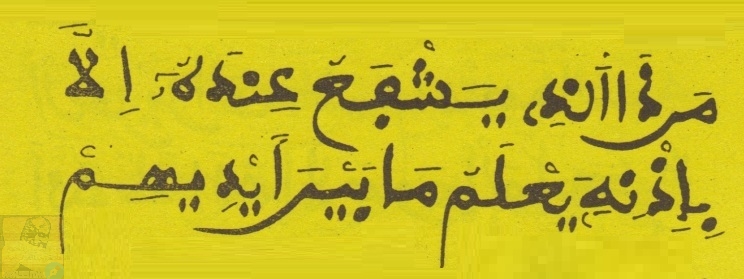 مَن ذَا ا۬لذِے يَشْفَعُ عِندَهُۥٓ إِلَّا
بِإِذْنِهِۦ يَعْلَمُ مَا بَيْنَ أَيْدِيهِمْ